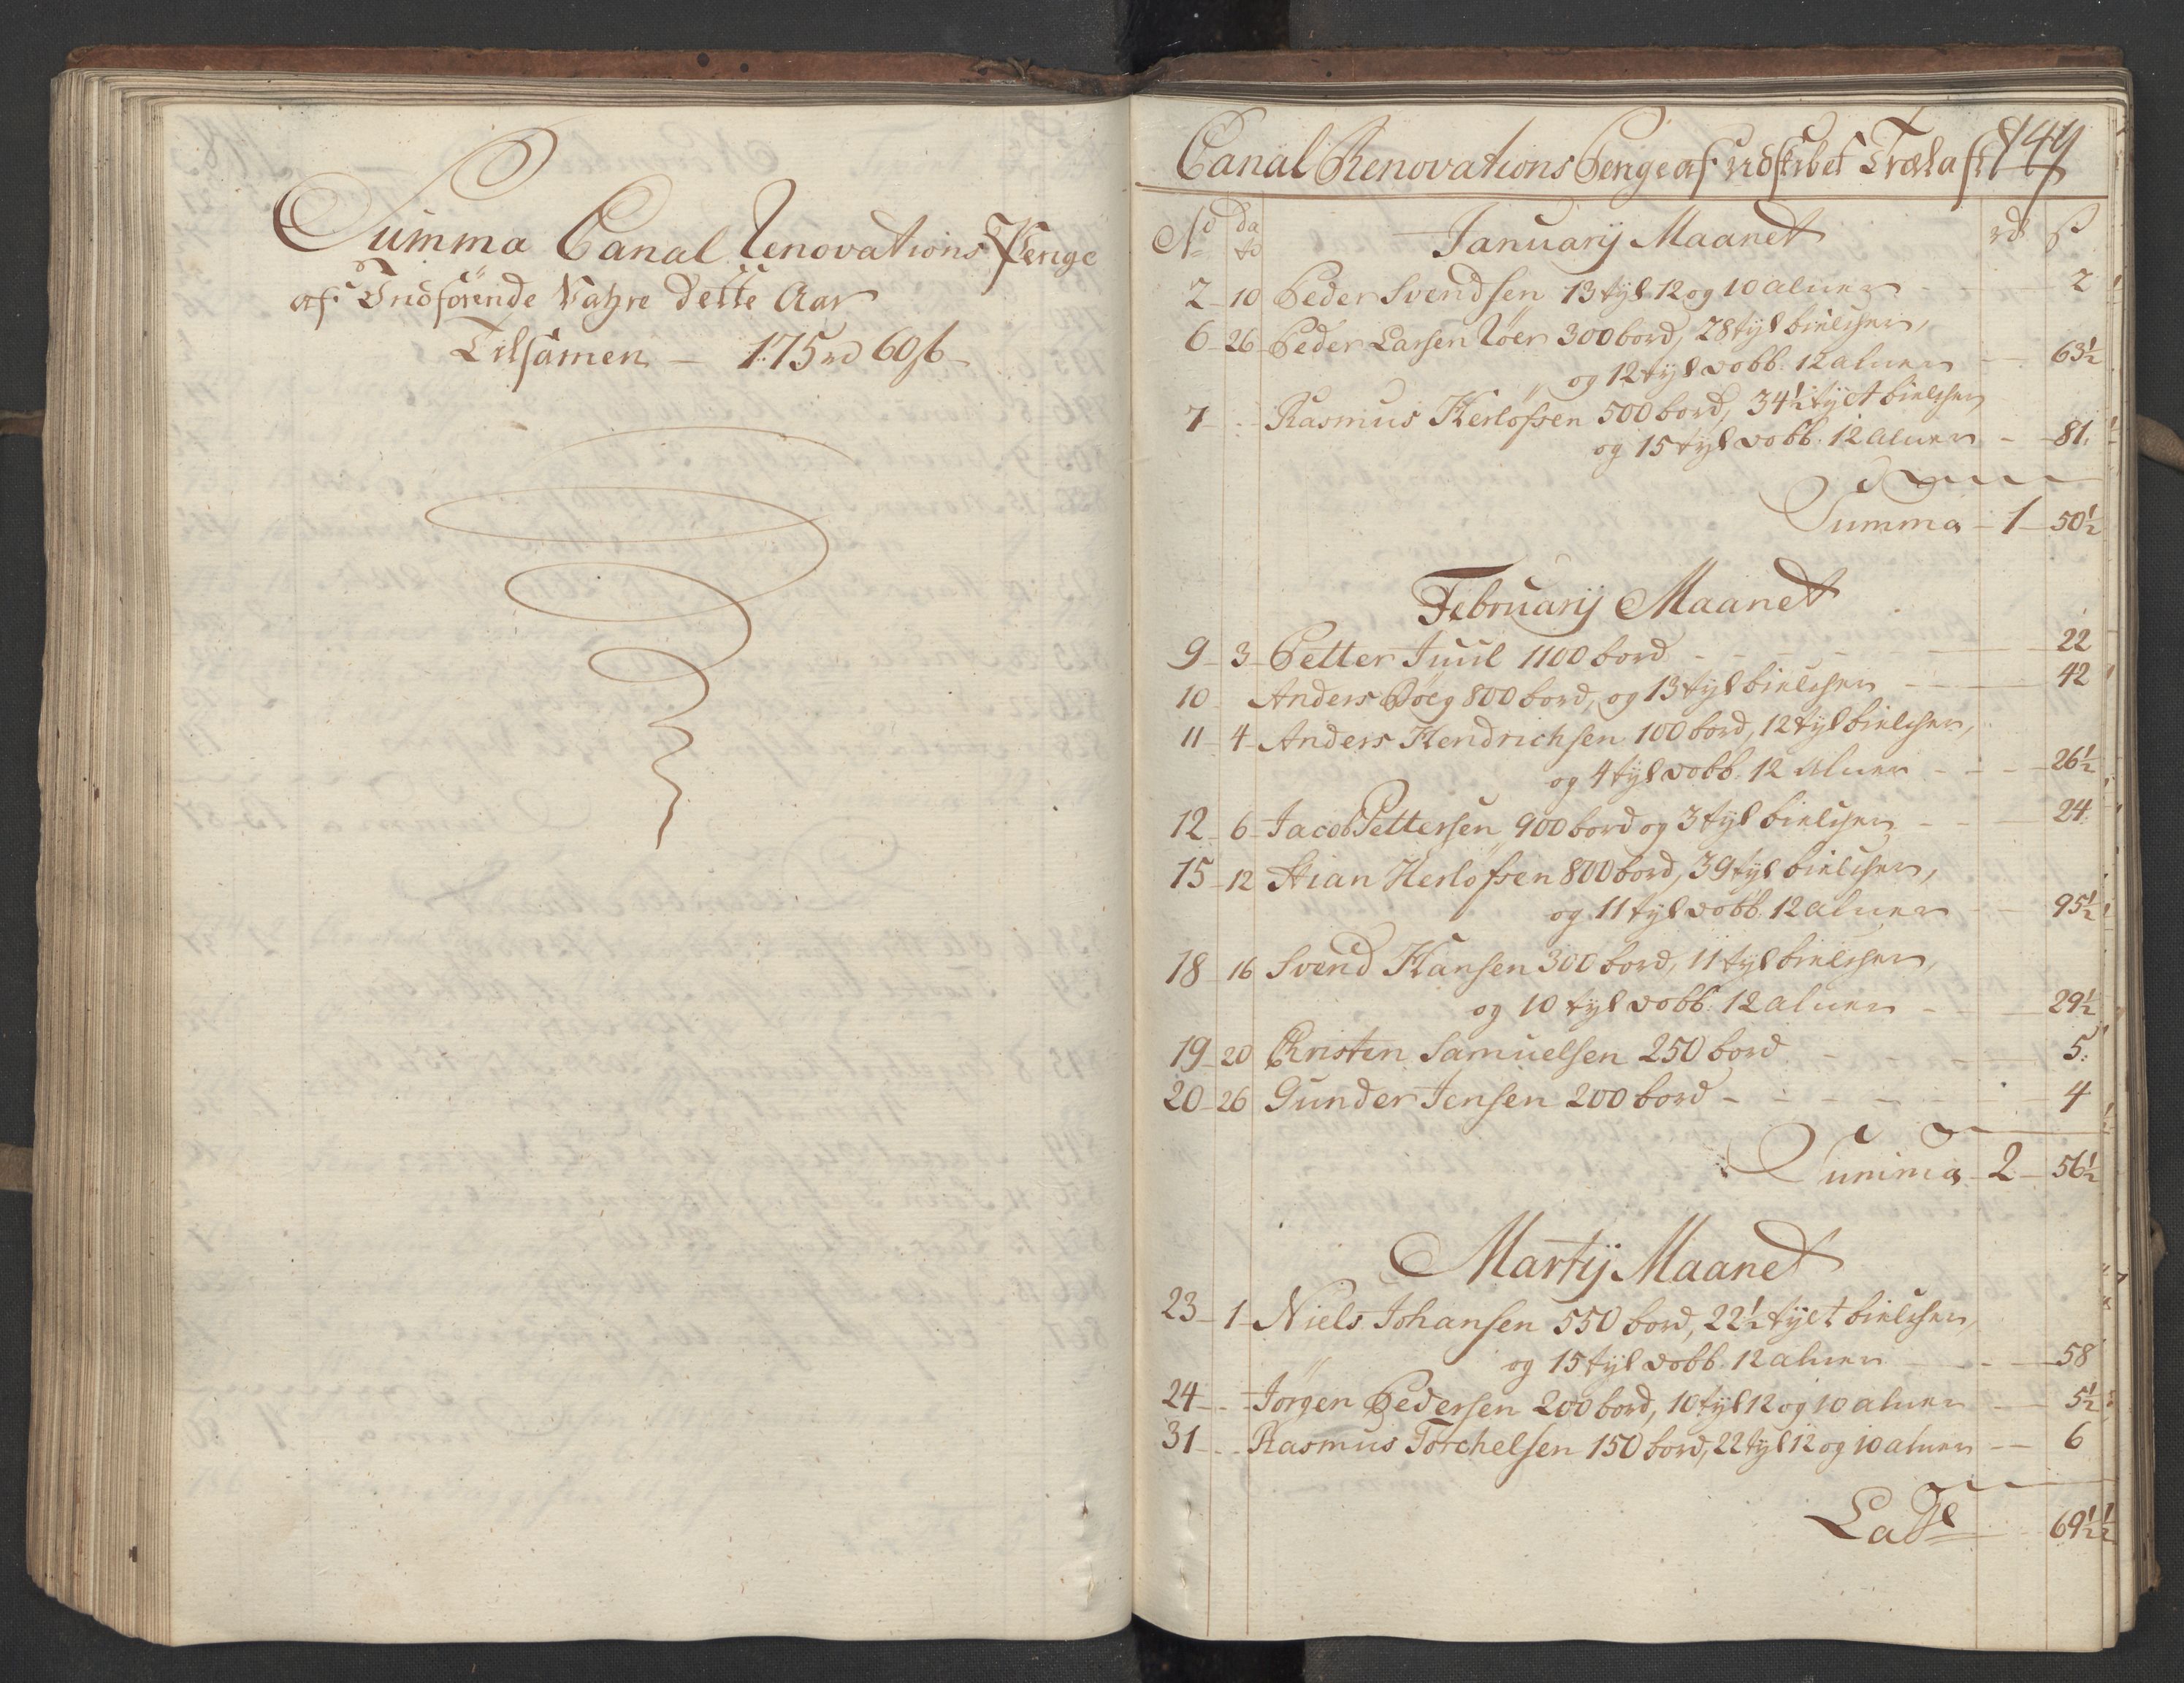 Summa Canal Renovations Penge
af Indförende Vahre dette Aar
Tilsamen — 175 rd 60 ß
Canal Renovations Penge af udskibet Trælast 149
No dato Januarij Maanet rd ß
2 10 Peder Svendsen 13 tylt 12 og 10 alner 2
6 26 Peder Larsen Röer 300 bord, 28 tylt bielcher,
og 12 tylt dobb. 12 alner 63½
7 Rasmus Herlofsen 500 bord, 34½ tylt bielcher
og 15 tylt dobb. 12 alner 81.
Summa 1 50½
Februarij Maanet
9 3 Petter Juul 1100 bord 22
10 Anders Böeg 800 bord, og 13 tylt bielcher 42
11 4 Anders Hendrichsen 100 bord, 12 tylt bielcher,
og 4 tylt dobb. 12 alner 26½
12 6 Jacob Pettersen 900 bord og 3 tylt bielcher 24.
15 12 Stian Herlofsen 800 bord, 39 tylt bielcher,
og 11 tylt dobb. 12 alner 95½
18 16 Svend Hansen 300 bord, 11 tylt bielcher,
og 10 tylt dobb. 12 alner 29½
19 20 Christen Samuelsen 250 bord 5.
20 26 Gunder Jensen 200 bord 4
Summa 2 56½
Martij Maanet
23 1 Niels Johansen 550 bord, 22½ tylt bielcher,
og 15 tylt dobb. 12 alner 58
24 Jörgen Pedersen 200 bord, 10 tylt 12 og 10 alner 5½
31 Rasmus Torchelsen 150 bord, 22 tylt 12 og 10 alner 6
Late 69½